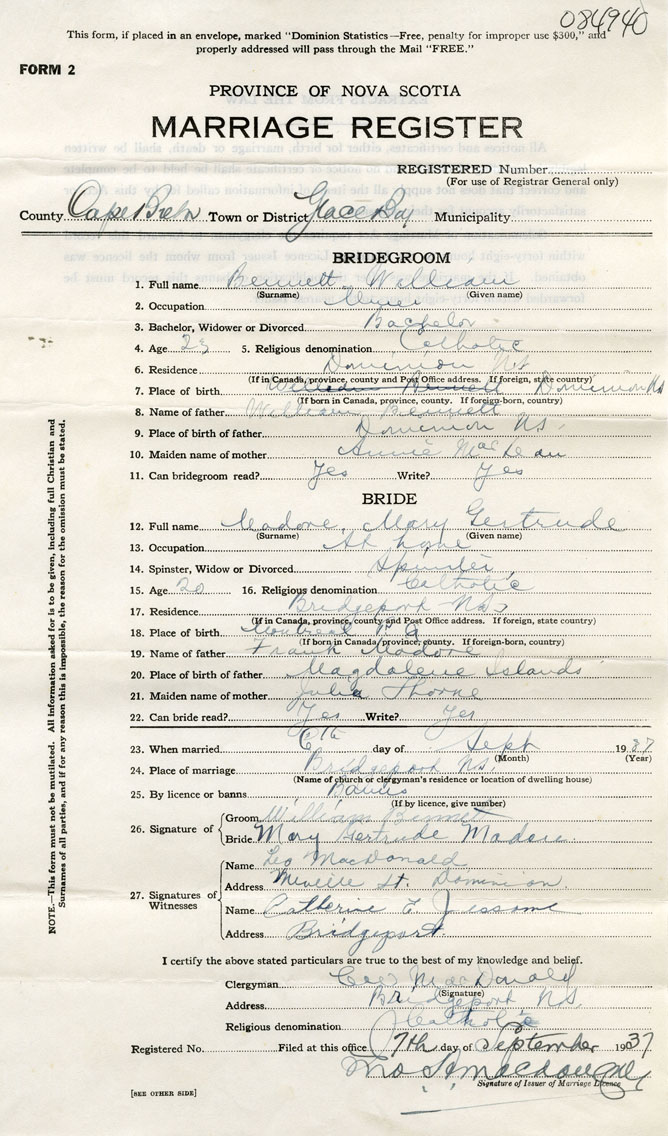 084940
This form, if placed in an envelope, marked "Dominion Statistics—Free, penalty for improper use $300," and
properly addressed will pass through the Mail "FREE."
FORM 2
PROVINCE OF NOVA SCOTIA
MARRIAGE REGISTER
REGISTERED Number
(For use of Registrar General only)
County Cape Breton Town or District Glace Bay Municipality
BRIDEGROOM
1. Full name Bennett William
(Surname) (Given name)
2. Occupation Miner
3. Bachelor, Widower or Divorced Bachelor
4. Age 23 5. Religious denomination Catholic
6. Residence Dominion N.S.
(If in Canada, province, county and Post Office address. If foreign, state country)
7. Place of birth William Bennett Dominion N.S.
(If born in Canada, province, county. If foreign-born, country)
8. Name of father William Bennett
9. Place of birth of father Dominion N.S.
10. Maiden name of mother Annie MacLean
11. Can bridegroom read? Yes Write? Yes
BRIDE
12. Full name Madore, Mary Gertrude
(Surname) (Given name)
13. Occupation At home
14. Spinster, Widow or Divorced Spinster
15. Age 20 16. Religious denomination Catholic
17. Residence Bridgeport N.S.
(If in Canada, province, county and Post Office address. If foreign, state country)
18. Place of birth Montreal P.Q.
(If born in Canada, province, county. If foreign-born, country)
19. Name of father Frank Madore
20. Place of birth of father Magdalene Islands
21. Maiden name of mother Julia Thorne
22. Can bride read? Yes Write? Yes
23. When married 6th day of Sept 1937
(Month) (Year)
24. Place of marriage Bridgeport N.S.
(Name of church or clergyman's residence or location of dwelling house)
25. By licence or banns Banns
(If by licence, give number)
26. Signature of
Groom William Bennett
Bride Mary Gertrude Madore
27. Signatures of Witnesses
Name Leo MacDonald
Address St. Dominion
Name Catherine F. Jessome
Address Bridgeport
I certify the above stated particulars are true to the best of my knowledge and belief.
Clergyman MacDonald
(Signature)
Address Bridgeport N.S.
Religious denomination Catholic
Registered No. Filed at this office 7th day of September 1937
Signature of Issuer of Marriage Licence
[SEE OTHER SIDE]
NOTE.—This form must not be mutilated. All information asked for is to be given, including full Christian and
Surnames of all parties, and if for any reason this is impossible, the reason for the omission must be stated.